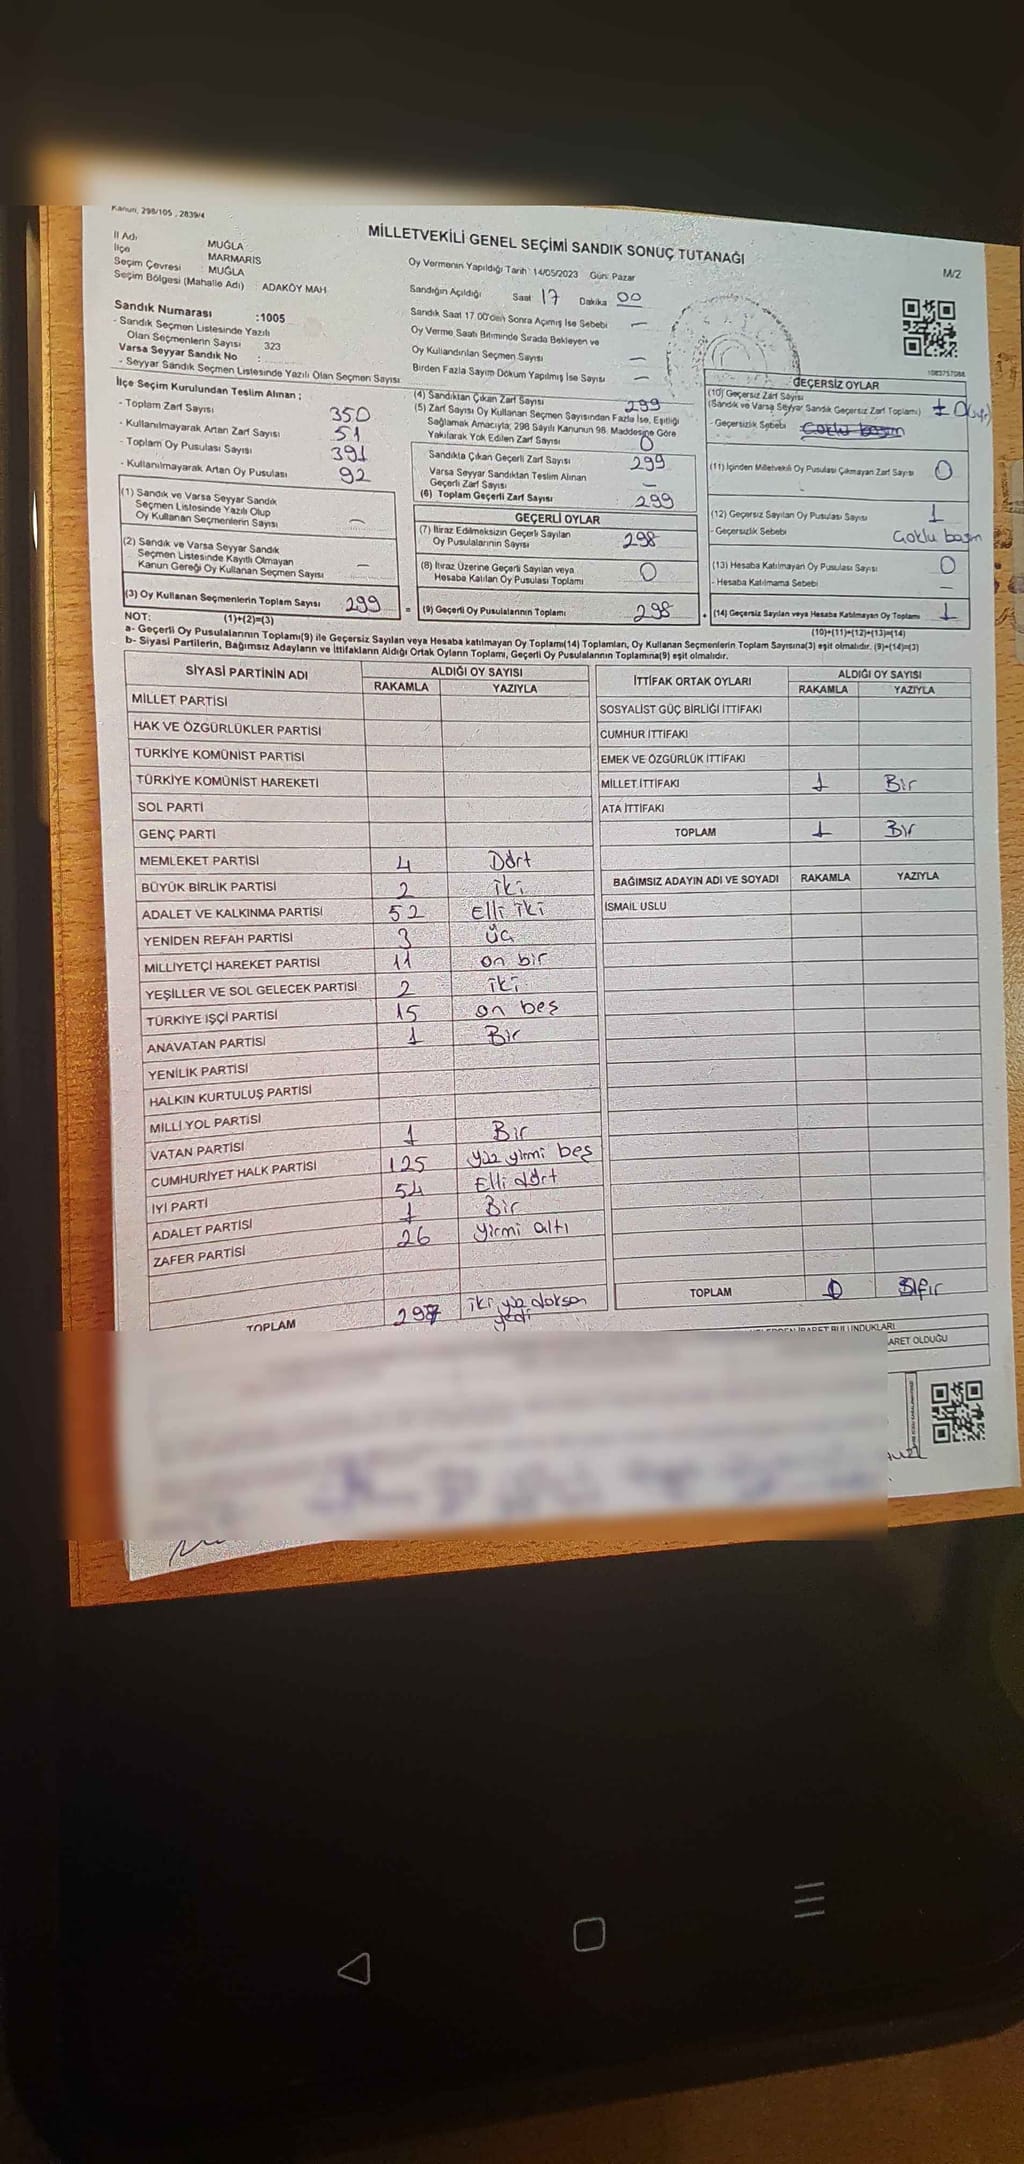 Kanun, 298/105 , 2839/4
MİLLETVEKİLİ GENEL SEÇİMİ SANDIK SONUÇ TUTANAĞI
M/2
İl Adı MUĞLA
İlçe MARMARİS
Seçim Çevresi : MUĞLA
Seçim Bölgesi (Mahalle Adı) : ADAKÖY MAH.
Sandık Numarası :1005
- Sandık Seçmen Listesinde Yazılı
Olan Seçmenlerin Sayısı 323
Varsa Seyyar Sandık No :
- Seyyar Sandık Seçmen Listesinde Yazılı Olan Seçmen Sayısı
Oy Vermenin Yapıldığı Tarih : 14/05/2023 Gün: Pazar
Sandığın Açıldığı Saat 17 Dakika 00
Sandık Saat 17.00'den Sonra Açımış İse Sebebi —
Oy Verme Saati Bitiminde Sırada Bekleyen ve
Oy Kullandırılan Seçmen Sayısı —
Birden Fazla Sayım Döküm Yapılmış İse Sayısı —
1083757088
İlçe Seçim Kurulundan Teslim Alınan ;
- Toplam Zarf Sayısı 350
- Kullanılmayarak Artan Zarf Sayısı 51
- Toplam Oy Pusulası Sayısı 391
- Kullanılmayarak Artan Oy Pusulası 92
(1) Sandık ve Varsa Seyyar Sandık
Seçmen Listesinde Yazılı Olup
Oy Kullanan Seçmenlerin Sayısı —
(2) Sandık ve Varsa Seyyar Sandık
Seçmen Listesinde Kayıtlı Olmayan
Kanun Gereği Oy Kullanan Seçmen Sayısı —
(3) Oy Kullanan Seçmenlerin Toplam Sayısı 299
(1)+(2)=(3)
(4) Sandıktan Çıkan Zarf Sayısı 299
(5) Zarf Sayısı Oy Kullanan Seçmen Sayısından Fazla İse, Eşitliği
Sağlamak Amacıyla; 298 Sayılı Kanunun 98. Maddesine Göre
Yakılarak Yok Edilen Zarf Sayısı 0
Sandıkta Çıkan Geçerli Zarf Sayısı 299
Varsa Seyyar Sandıktan Teslim Alınan
Geçerli Zarf Sayısı —
(6) Toplam Geçerli Zarf Sayısı 299
GEÇERLİ OYLAR
(7) İtiraz Edilmeksizin Geçerli Sayılan
Oy Pusulalarının Sayısı 298
(8) İtiraz Üzerine Geçerli Sayılan veya
Hesaba Katılan Oy Pusulası Toplamı 0
= (9) Geçerli Oy Pusulalarının Toplamı 298
GEÇERSİZ OYLAR
(10) Geçersiz Zarf Sayısı
(Sandık ve Varsa Seyyar Sandık Geçersiz Zarf Toplamı) 1 0(sıfır)
- Geçersizlik Sebebi Çoklu basım
(11) İçinden Milletvekili Oy Pusulası Çıkmayan Zarf Sayısı 0
(12) Geçersiz Sayılan Oy Pusulası Sayısı 1
- Geçersizlik Sebebi Çoklu basım
(13) Hesaba Katılmayan Oy Pusulası Sayısı 0
- Hesaba Katılmama Sebebi
+ (14) Geçersiz Sayılan veya Hesaba Katılmayan Oy Toplamı 1
(10)+(11)+(12)+(13)=(14)
NOT:
a- Geçerli Oy Pusulalarının Toplamı(9) ile Geçersiz Sayılan veya Hesaba katılmayan Oy Toplamı(14) Toplamları, Oy Kullanan Seçmenlerin Toplam Sayısına(3) eşit olmalıdır. (9)+(14)=(3)
b- Siyasi Partilerin, Bağımsız Adayların ve İttifakların Aldığı Ortak Oyların Toplamı, Geçerli Oy Pusulalarının Toplamına(9) eşit olmalıdır.
SİYASİ PARTİNİN ADI ALDIĞI OY SAYISI
RAKAMLA YAZIYLA
MİLLET PARTİSİ
HAK VE ÖZGÜRLÜKLER PARTİSİ
TÜRKİYE KOMÜNİST PARTİSİ
TÜRKİYE KOMÜNİST HAREKETİ
SOL PARTİ
GENÇ PARTİ
MEMLEKET PARTİSİ 4 Dört
BÜYÜK BİRLİK PARTİSİ 2 iki
ADALET VE KALKINMA PARTİSİ 52 Elli iki
YENİDEN REFAH PARTİSİ 3 üç
MİLLİYETÇİ HAREKET PARTİSİ 11 on bir
YEŞİLLER VE SOL GELECEK PARTİSİ 2 iki
TÜRKİYE İŞÇİ PARTİSİ 15 on beş
ANAVATAN PARTİSİ 1 Bir
YENİLİK PARTİSİ
HALKIN KURTULUŞ PARTİSİ
MİLLİ YOL PARTİSİ
VATAN PARTİSİ 1 Bir
CUMHURİYET HALK PARTİSİ 125 yüz yirmi beş
İYİ PARTİ 54 Elli dört
ADALET PARTİSİ 1 Bir
ZAFER PARTİSİ 26 yirmi altı
TOPLAM 297 iki yüz doksan
yedi
İTTİFAK ORTAK OYLARI ALDIĞI OY SAYISI
RAKAMLA YAZIYLA
SOSYALİST GÜÇ BİRLİĞİ İTTİFAKI
CUMHUR İTTİFAKI
EMEK VE ÖZGÜRLÜK İTTİFAKI
MİLLET İTTİFAKI 1 Bir
ATA İTTİFAKI
TOPLAM 1 Bir
BAĞIMSIZ ADAYIN ADI VE SOYADI RAKAMLA YAZIYLA
İSMAİL USLU
TOPLAM 0 Sıfır
İBARET BULUNDUKLARI
ARET OLDUĞU